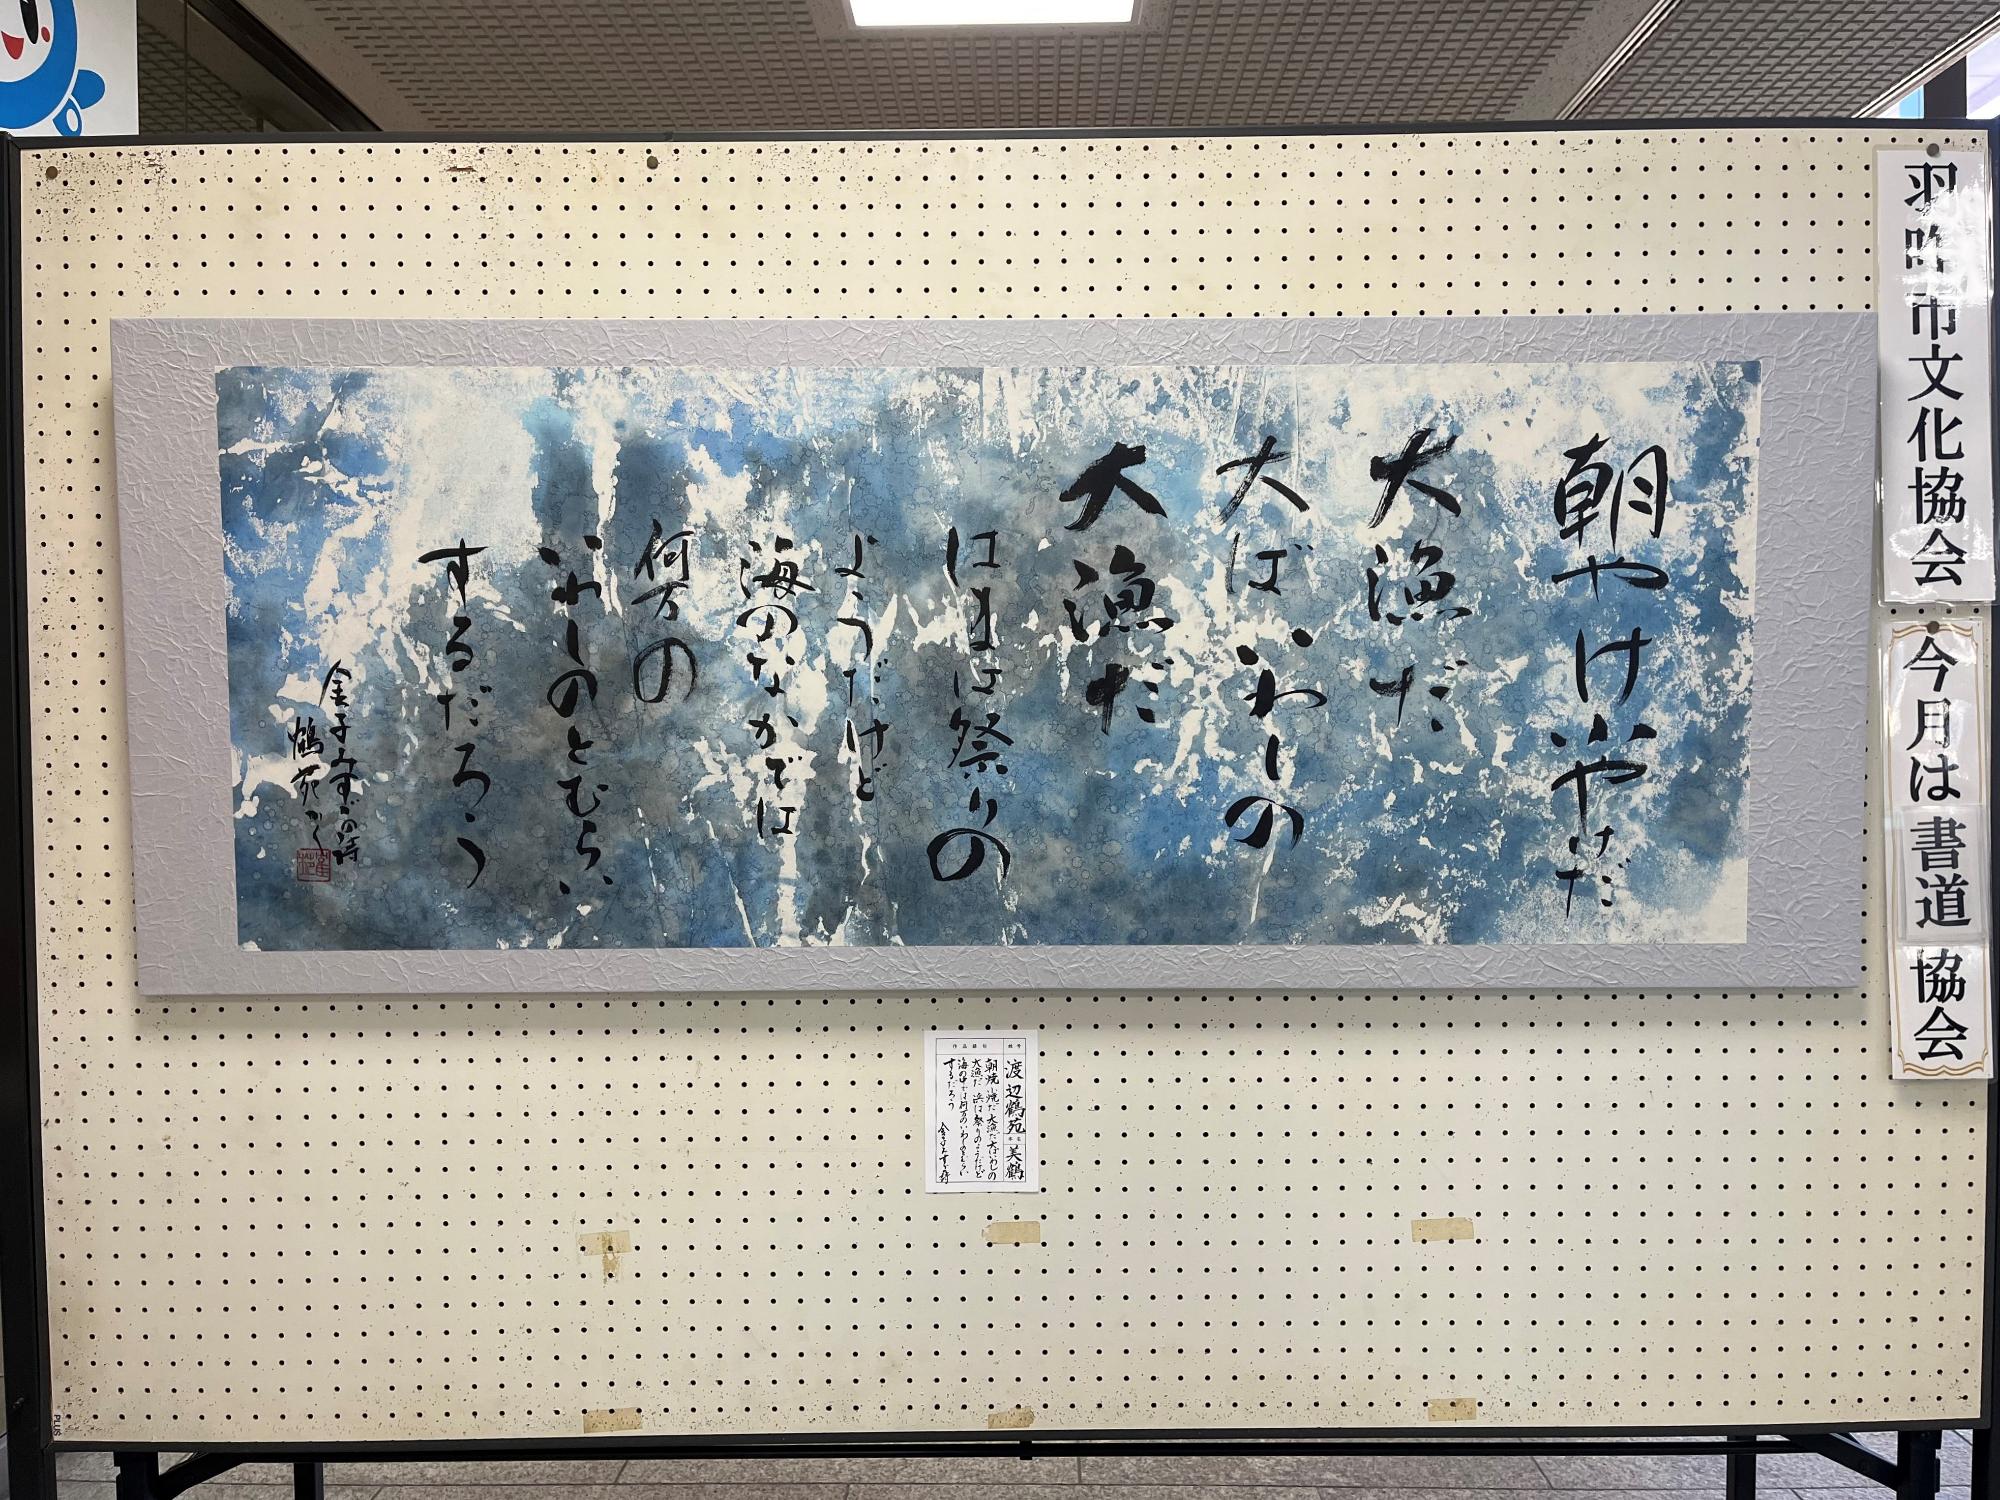 羽咋市文化協会
今月は書道協会
朝やけ小やけだ
大漁だ
大ばいわしの
大漁だ
はまは祭りの
ようだけど
海のなかでは
何万の
いわしのとむらい
するだろう
金子みすゞの詩
鶴苑かく
雅号
渡辺鶴苑
本名
美鶴
作品釈文
朝焼小焼だ大漁だ大ばいわしの
大漁だ 浜は祭りのようだけど
海の中では何万のいわしのとむらい
するだろう
金子みすゞ詩
PLUS